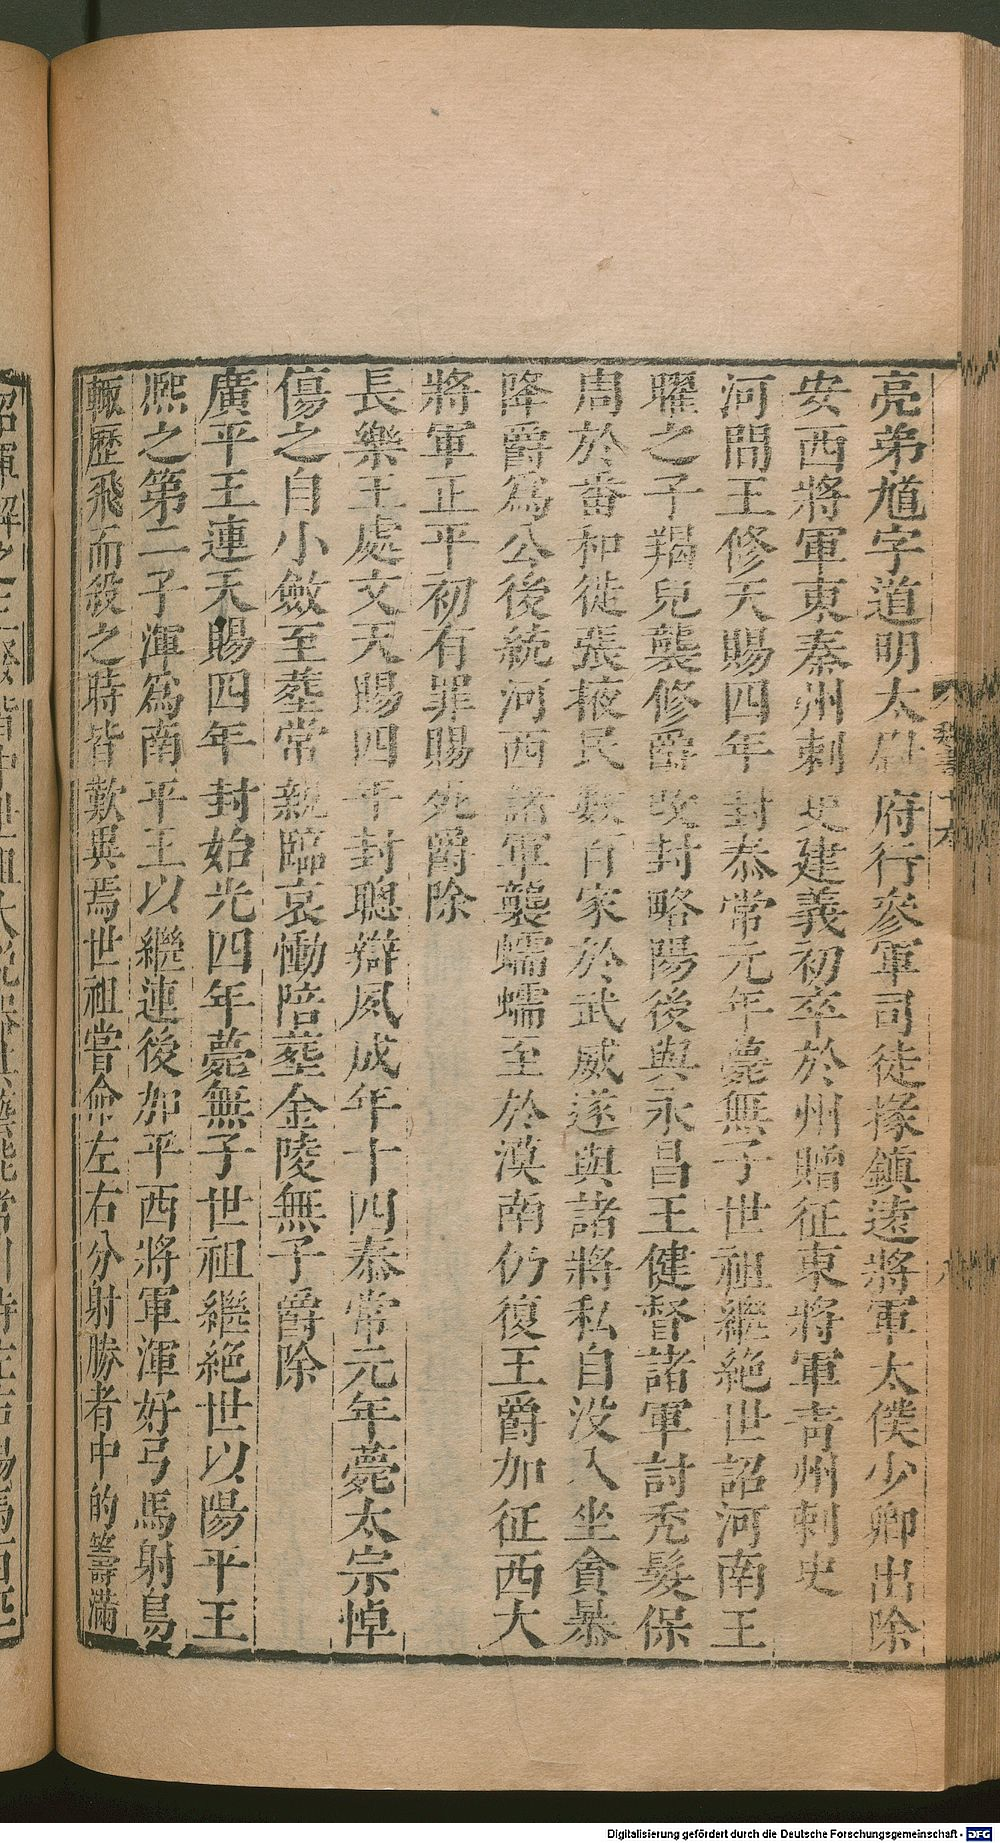 亮弟馗字道明太尉府行參軍司徒掾鎮遠將軍太僕少卿出除
安西將軍東秦州刺史建義初卒於州贈征東將軍青州刺史
河間王修天賜四年封泰常元年薨無子世祖繼絕世詔河南王
曜之子羯兒襲修爵改封略陽後與永昌王健督諸軍討禿髮保
周於番和徙張掖民數百家於武威遂與諸將私自沒入坐貪暴
降爵爲公後統河西諸軍襲蠕蠕至於漠南仍復王爵加征西大
將軍正平初有罪賜死爵除
長樂王處文天賜四年封聰辯夙成年十四泰常元年薨太宗悼
傷之自小斂至葬常親臨哀慟陪葬金陵無子爵除
廣平王連天賜四年封始光四年薨無子世祖繼絕世以陽平王
熙之第二子渾爲南平王以繼連後加平西將軍渾好弓馬射鳥
輒歷飛而殺之時皆歎異焉世祖嘗命左右分射勝者中的籌滿
Digitalisierung gefördert durch die Deutsche Forschungsgemeinschaft - DFG